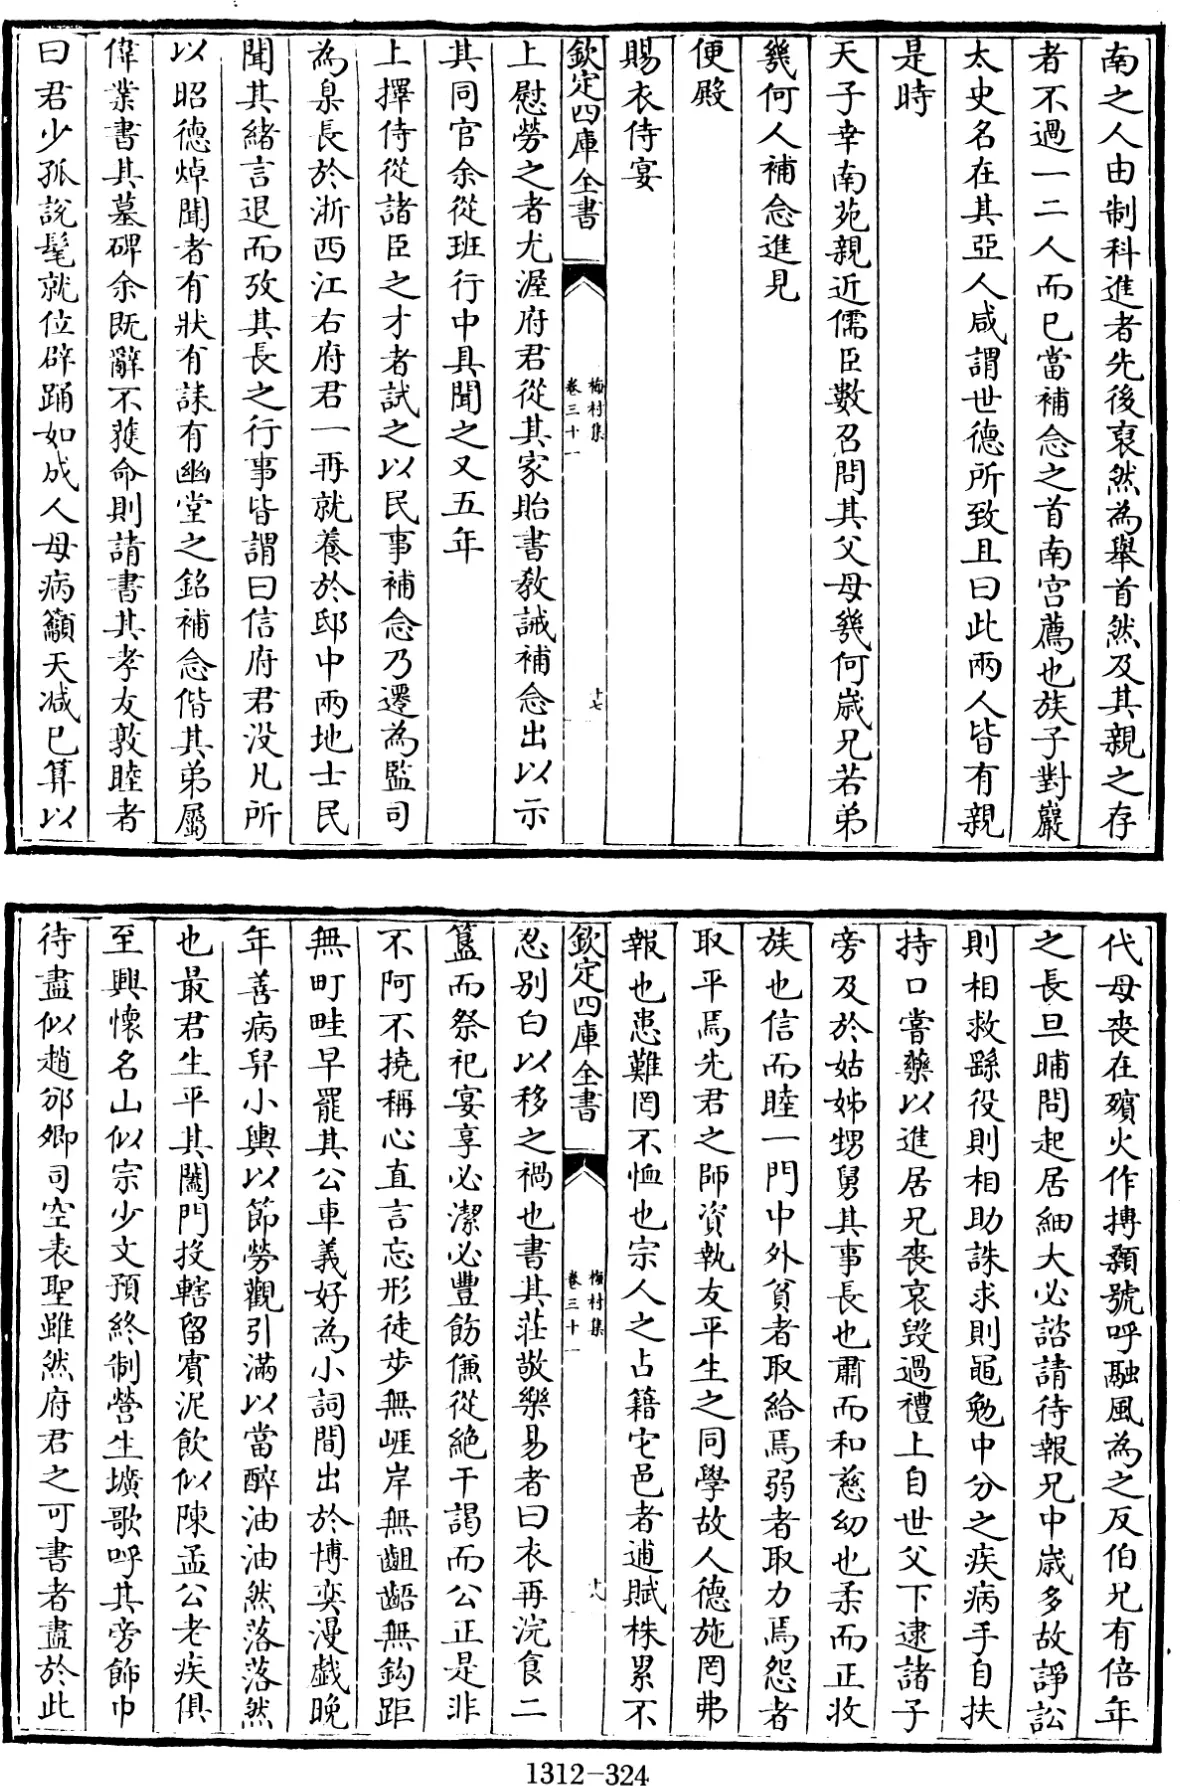 南之人由制科進者先後裒然為舉首然及其親之存
者不過一二人而已當補念之首南宫薦也族子對巖
太史名在其亞人咸謂世德所致且曰此兩人皆有親
是時
天子幸南苑親近儒臣數召問其父母幾何歲兄若弟
幾何人補念進見
便殿
賜衣侍宴
欽定四庫全書
梅村集
卷三十一
十七
上慰勞之者尤渥府君從其家貽書敎誡補念出以示
其同官余從班行中具聞之又五年
上擇侍從諸臣之才者試之以民事補念乃遷為監司
為臬長於浙西江右府君一再就養於邸中兩地士民
聞其緒言退而攷其長之行事皆謂曰信府君没凡所
以昭德焯聞者有狀有誄有幽堂之銘補念偕其弟屬
偉業書其墓碑余既辭不獲命則請書其孝友敦睦者
曰君少孤說髦就位辟踊如成人母病籲天减已算以
代母喪在殯火作摶顙號呼融風為之反伯兄有倍年
之長旦晡問起居細大必諮請待報兄中歲多故諍訟
則相救繇役則相助誅求則黽勉中分之疾病手自扶
持口嘗藥以進居兄喪哀毀過禮上自世父下逮諸子
旁及於姑姊甥舅其事長也肅而和慈幼也柔而正收
族也信而睦一門中外貧者取給焉弱者取力焉怨者
取平焉先君之師資執友平生之同學故人德施罔弗
報也患難罔不恤也宗人之占籍宅邑者逋賦株累不
欽定四庫全書
梅村集
卷三十一
十八
忍别白以移之禍也書其莊敬樂易者曰衣再浣食二
簋而祭祀宴享必潔必豐飭傔從絶干謁而公正是非
不阿不撓稱心直言忘形徒步無崕岸無齟齬無鈎距
無町畦早罷其公車義好為小詞間出於博奕漫戯晚
年善病舁小輿以節勞觀引滿以當醉油油然落落然
也最君生平其闔門投轄留賓泥飲似陳孟公老疾俱
至興懷名山似宗少文預終制營生壙歌呼其旁飾巾
待盡似趙邠卿司空表聖雖然府君之可書者盡於此
1312-324